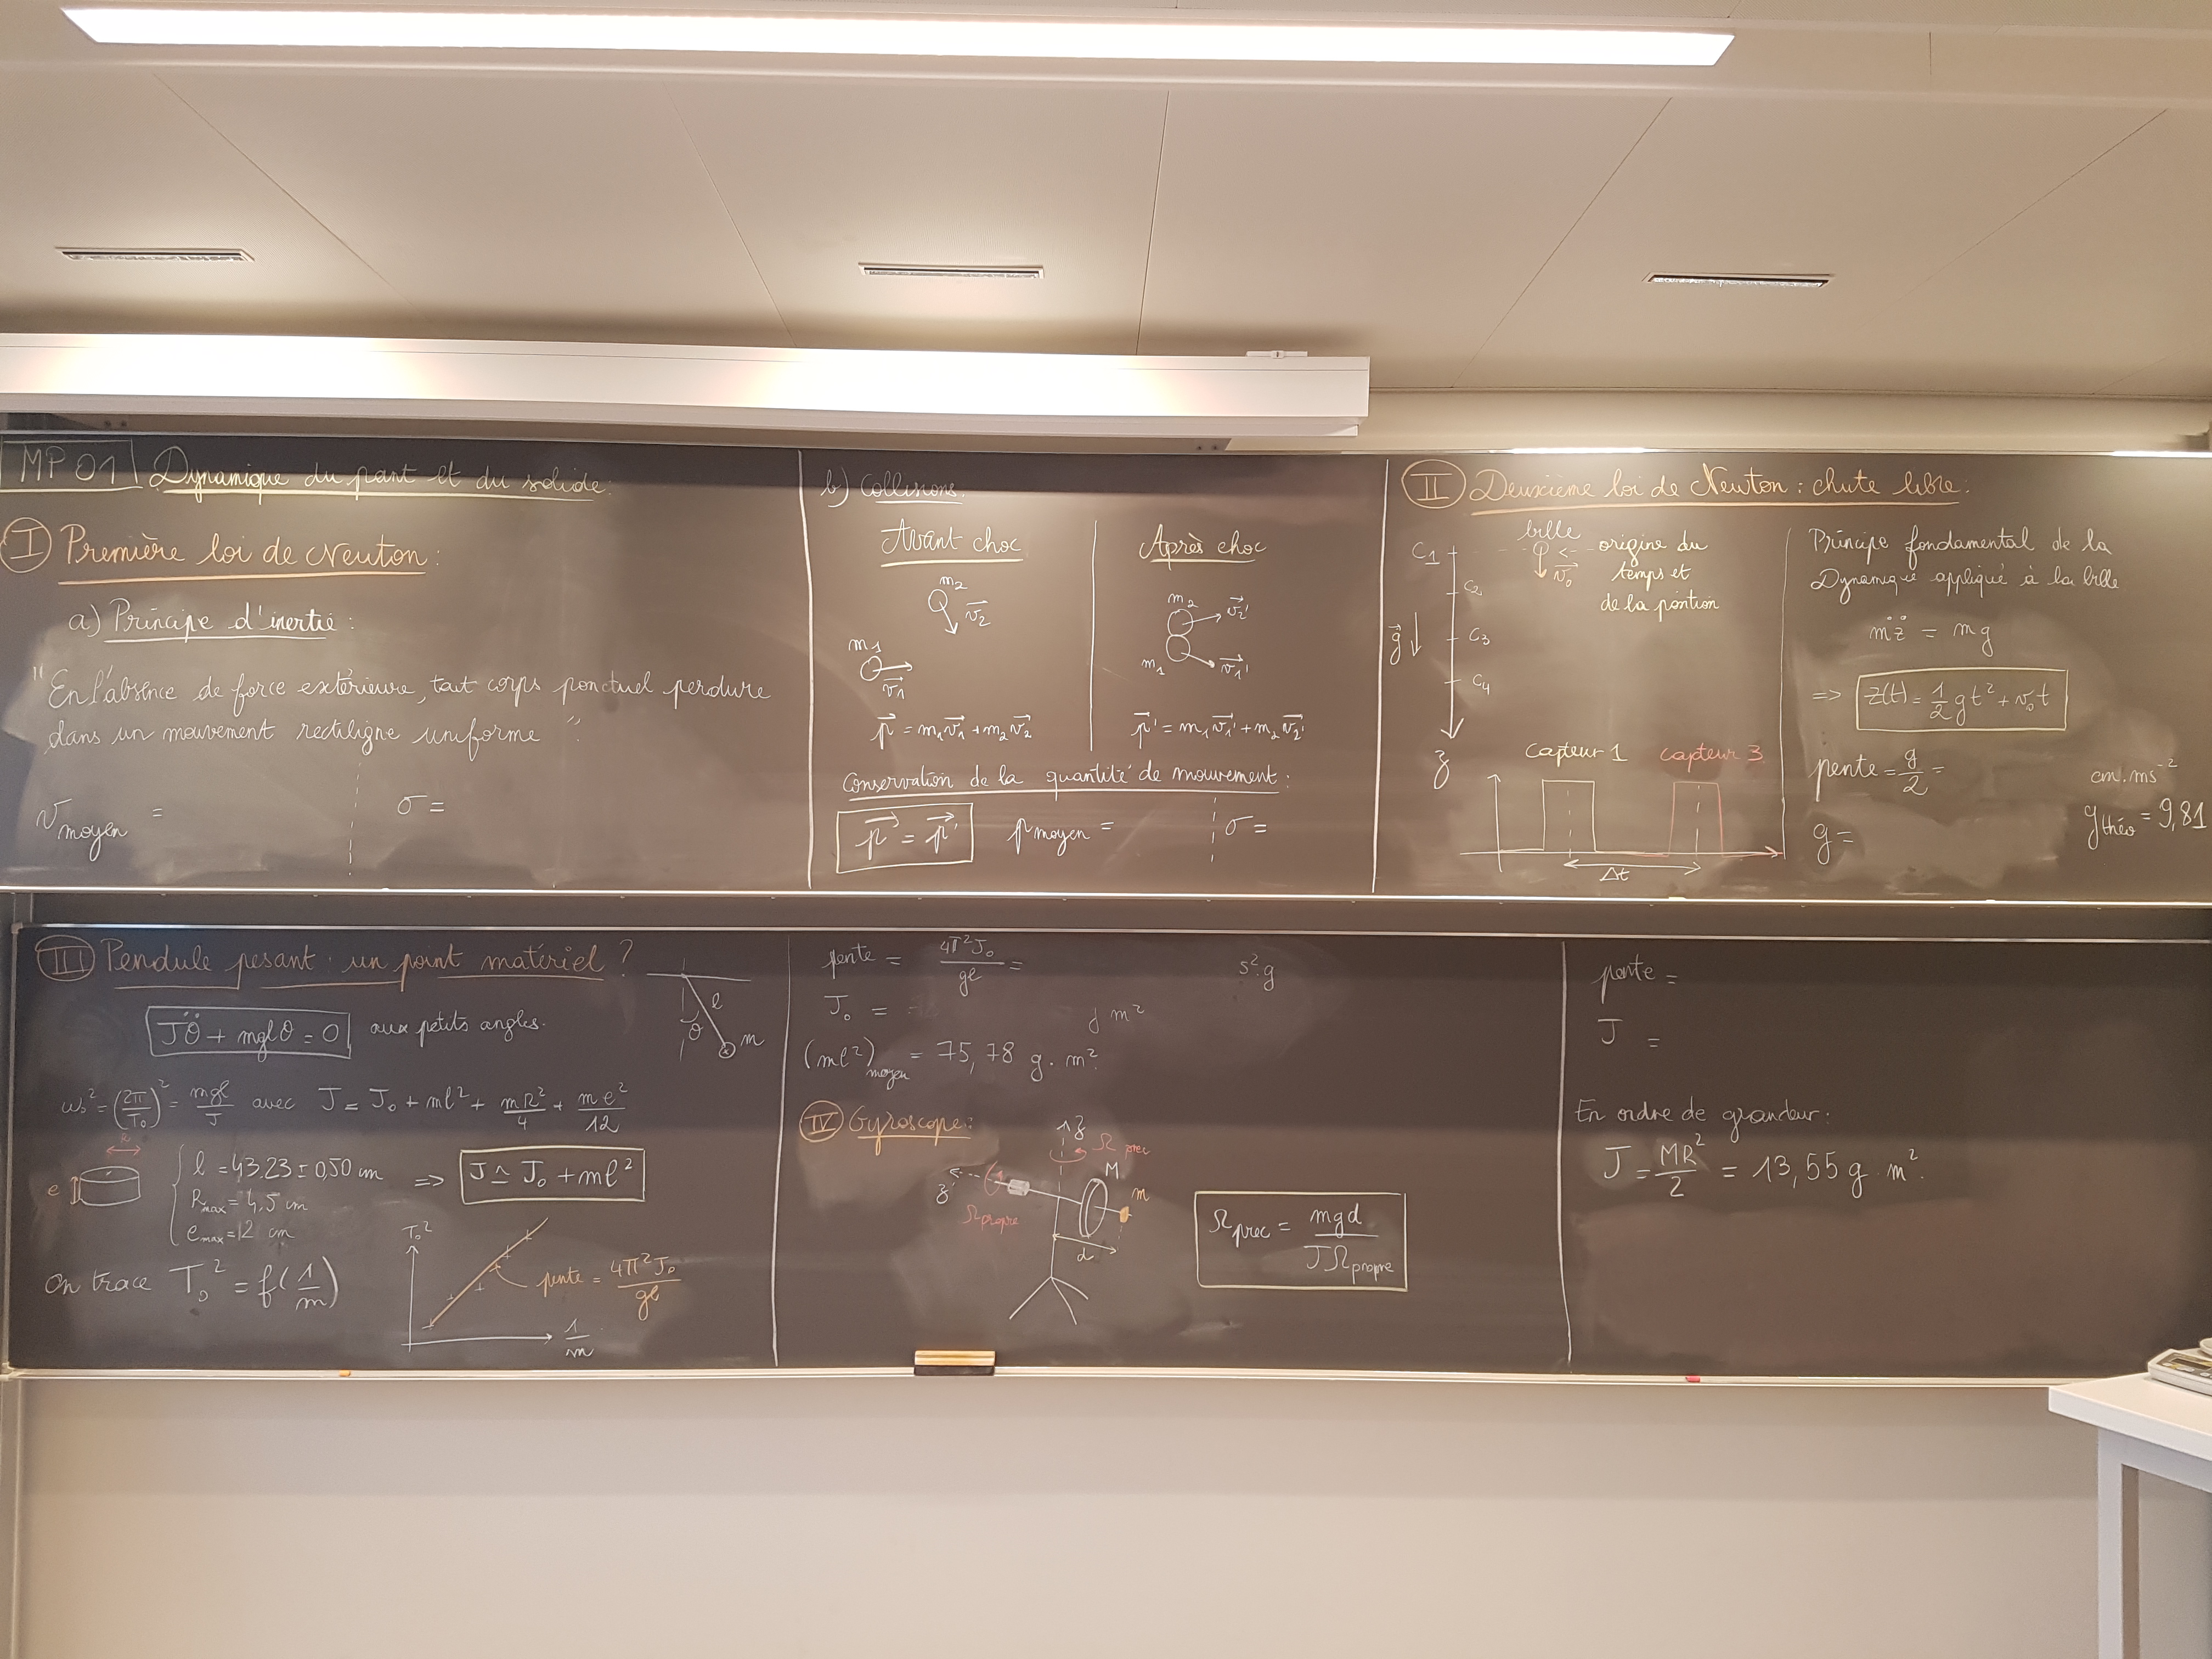 MP 01 Dynamique du point et du solide.
I Première loi de Newton :
a) Principe d'inertie :
"En l'absence de force extérieure, tout corps ponctuel perdure
dans un mouvement rectiligne uniforme"
v moyen =
σ =
b) Collisions.
Avant choc
m₂
v⃗₂
m₁
v⃗₁
p⃗ = m₁v⃗₁ + m₂v⃗₂
Après choc
m₂
v⃗₂'
m₁
v⃗₁'
p⃗' = m₁v⃗₁' + m₂v⃗₂'
Conservation de la quantité de mouvement :
p⃗ = p⃗'
p moyen =
σ =
II Deuxième loi de Newton : chute libre.
bille
C₁
C₂
C₃
C₄
g⃗
z
v⃗₀
origine du
temps et
de la position
capteur 1
capteur 3
Δt
Principe fondamental de la
Dynamique appliqué à la bille
mz̈ = mg
=> z(t) = 1/2 gt² + v₀t
pente = g/2 =
cm.ms⁻²
g =
g théo = 9,81
III Pendule pesant : un point matériel ?
Jθ̈ + mglθ = 0 aux petits angles.
l
θ
m
ω₀² = (2π/T₀)² = mgl/J avec J = J₀ + ml² + mR²/4 + me²/12
R
e
l = 43.23 ± 0,50 cm
Rmax = 4,5 cm
emax = 12 cm
=> J ≃ J₀ + ml²
On trace T₀² = f(1/m)
T₀²
pente = 4π²J₀/gl
1/m
pente = 4π²J₀/gl =
s².g
J₀ =
g m²
(ml²) moyen = 75,78 g.m².
IV Gyroscope :
z
Ω prec
z'
Ω propre
M
m
d
Ω prec = mgd/JΩ propre
pente =
J =
En ordre de grandeur :
J = MR²/2 = 13,55 g.m².